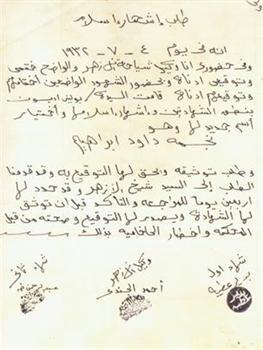 طلب إشهار اسلام
انه فى يوم ٤ - ٧ - ١٩٣٢
وفى حضورى انا وكيل شياخة الأزهر والواضح ختمى
وتوقيعى ادناه وبحضور الشهود الواضعين اختامهم
وتوقيعهم ادناه قامت السيدة / بولينا
بنطق الشهادتين وإشهار اسلامها واختيار
اسم جديد لها وهو
نجمه داود ابراهيم
وطلب توثيقه والحق لها التوقيع به وقد قدمنا
الطلب إلى السيد شيخ الأزهر وقد حدد لها
اربعين يوما للمراجعه والتأكد قبل ان توثق
لها الشهادة ويصدر لها التوقيع وصحته من قبل
المحكمه واخطار الحاخاميه بذلك
شاهد اول وكيل شاهد ثانى
أحمد الجندى